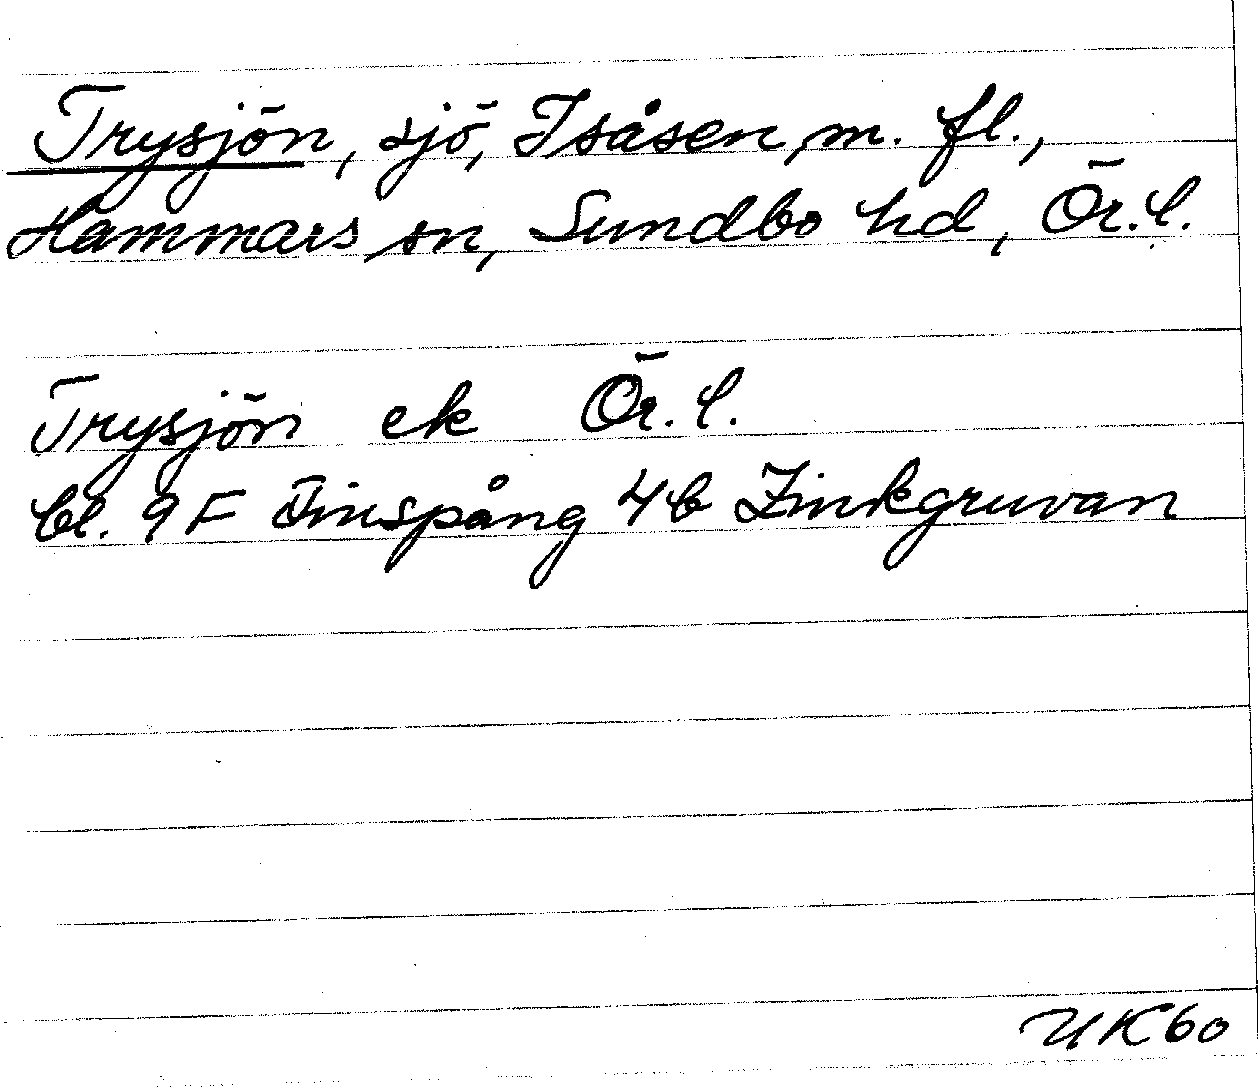 Trysjön, sjö, Isåsen m. fl.,
Hammars sn, Sundbo hd, Ör. l.
Trysjön ek Ör. l.
bl. 9 F Finspång 4b Zinkgruvan
UK60